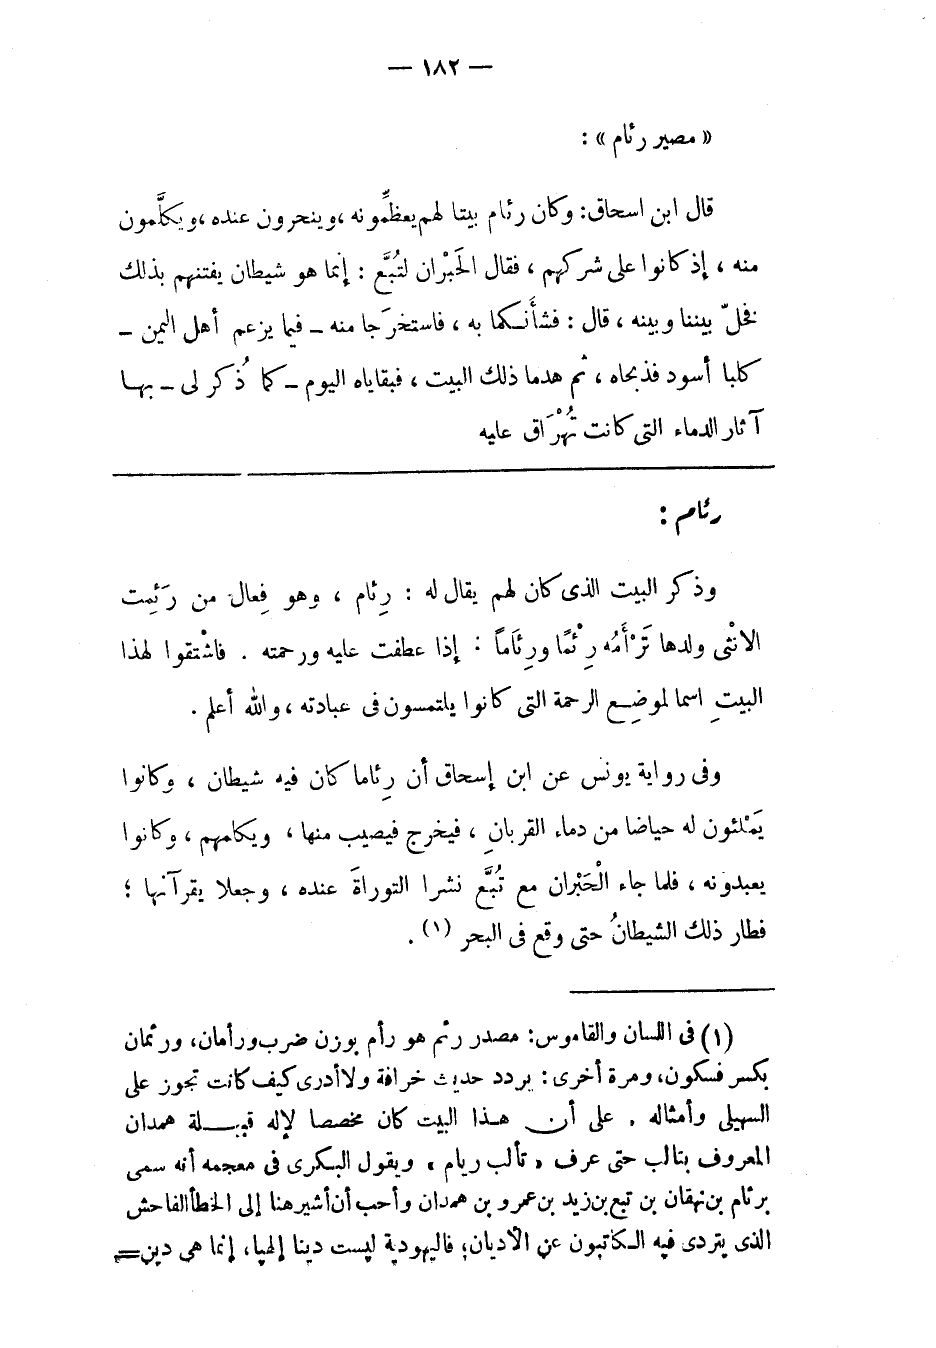 — ١٨٢ —
« مصير رئام » :
قال ابن اسحاق: وكان رئام بيتا لهم يعظِّمونه ، وينحرون عنده ، ويكلَّمون
منه ، إذ كانوا على شركهم ، فقال الحَبْران لتُبَّع : إنما هو شيطان يفتنهم بذلك
فخلّ بيننا وبينه ، قال : فشأنَكما به ، فاستخرَجا منه – فيما يزعم أهل اليمن –
كلبا أسود فذبحاه ، ثم هدما ذلك البيت ، فبقاياه اليوم – كما ذُكر لى – بهـا
آثار الدماء التى كانت تُهْرَاق عليه
رئام :
وذكر البيت الذى كان لهم يقال له : رِئام ، وهو فِعال من رَئِمت
الانْثى ولدها تَرْأَمُه رِئْمًا ورِئَاماً : إذا عطفت عليه ورحمته . فاشْتقوا لهذا
البيتِ اسما لموضِع الرحمة التى كانوا يلتمسون فى عبادته ، والله أعلم .
وفى رواية يونس عن ابن إسحاق أن رِئاما كان فيه شيطان ، وكانوا
يَمْلئون له حياضا من دماء القربانِ ، فيخرج فيصيب منها ، ويكلمهم ، وكانوا
يعبدونه ، فلما جاء الْحَبْران مع تُبَّع نشرا التوراةَ عنده ، وجعلا يقرآنها ؛
فطار ذلك الشيطانُ حتى وقع فى البحر (١) .
(١) فى اللسان والقاموس: مصدر رئم هو رأم بوزن ضرب ورأمان، ورئمان
بكسر فسكون، ومرة أخرى: يردد حديث خرافة ولا أدرى كيف كانت تجوز على
السهيلى وأمثاله . على أن هـذا البيت كان مخصصا لإله قبيـلة همدان
المعروف بتالب حتى عرف « تألب ريام » ويقول البكرى فى معجمه أنه سمى
برئام بن نهقان بن تبع بن زيد بن عمرو بن همدان وأحب أن أشير هنا إلى الخطأ الفاحش
الذى يتردى فيه الكاتبون عن الأديان؛ فاليهودية ليست دينا إلهيا، إنما هى دين =